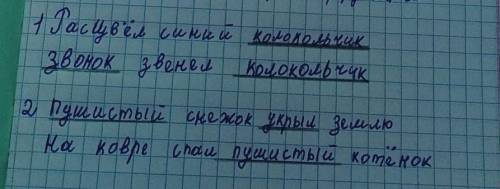 1 Расцвёл синий колокольчик
звонок звенел колокольчик
2 пушистый снежок укрыл землю
На ковре спал пушистый котёнок